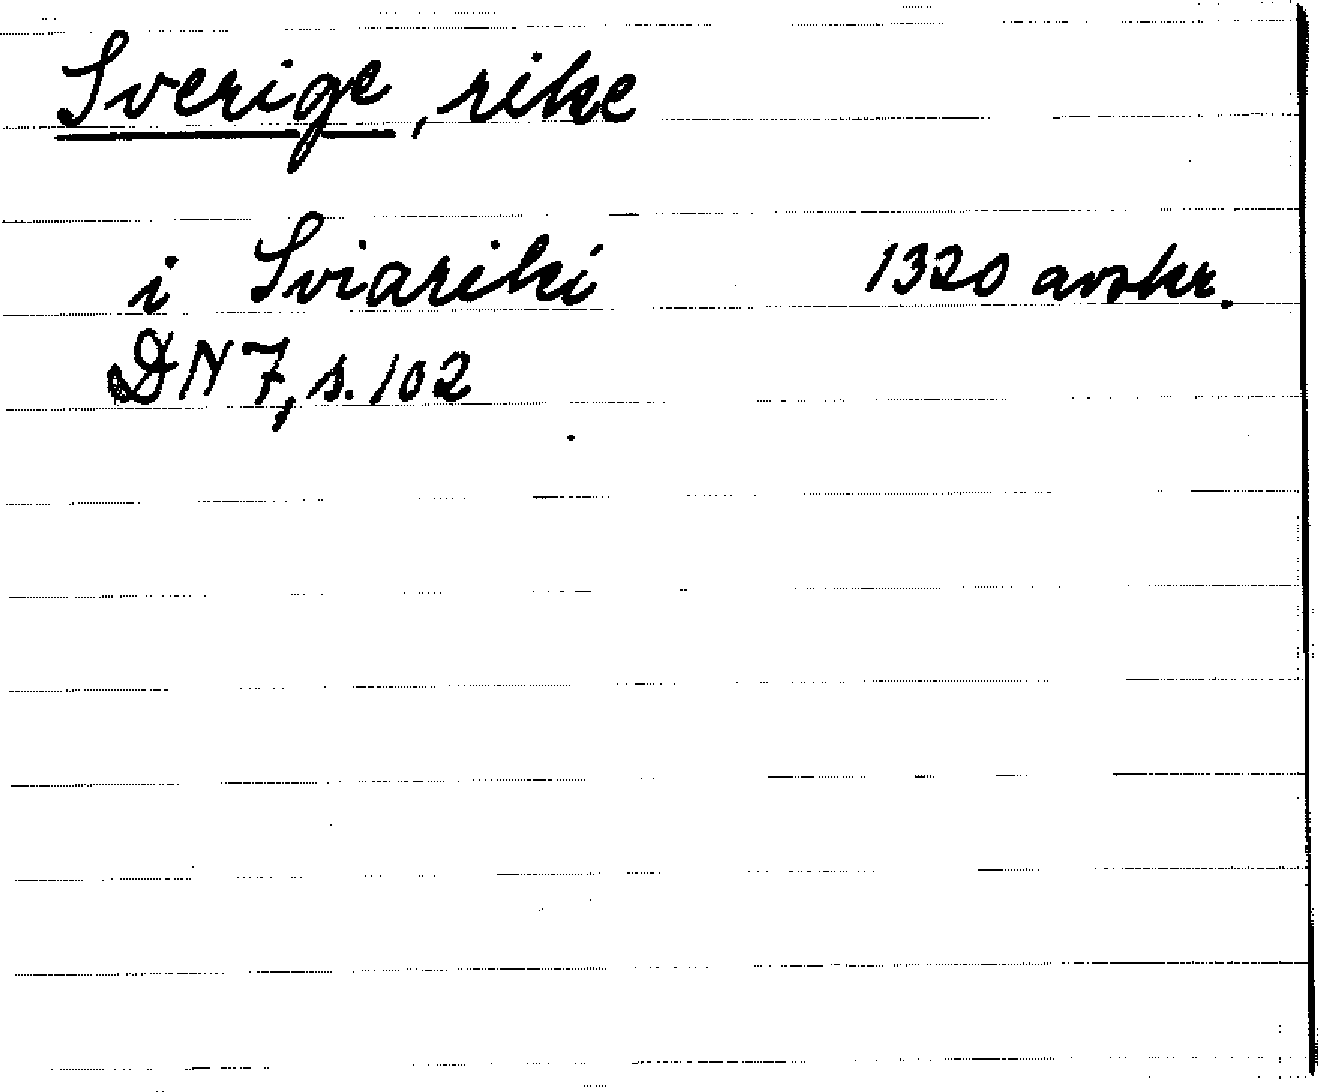 Sverige, rike
i Sviariki 1320 avskr.
DN 7, s. 102